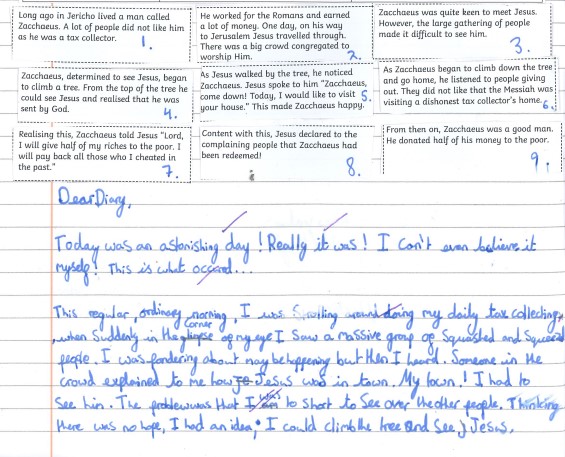 Long ago in Jericho lived a man called
Zacchaeus. A lot of people did not like him
as he was a tax collector.
1.
He worked for the Romans and earned
a lot of money. One day, on his way
to Jerusalem Jesus travelled through.
There was a big crowd congregated to
worship Him.
2.
Zacchaeus was quite keen to meet Jesus.
However, the large gathering of people
made it difficult to see him.
3.
Zacchaeus, determined to see Jesus, began
to climb a tree. From the top of the tree he
could see Jesus and realised that he was
sent by God.
4.
As Jesus walked by the tree, he noticed
Zacchaeus. Jesus spoke to him "Zacchaeus,
come down! Today, I would like to visit
your house." This made Zacchaeus happy.
5.
As Zacchaeus began to climb down the tree
and go home, he listened to people giving
out. They did not like that the Messiah was
visiting a dishonest tax collector's home.
6.
Realising this, Zacchaeus told Jesus "Lord,
I will give half of my riches to the poor. I
will pay back all those who I cheated in
the past."
7.
Content with this, Jesus declared to the
complaining people that Zacchaeus had
been redeemed!
8.
From then on, Zacchaeus was a good man.
He donated half of his money to the poor.
9.
Dear Diary,
Today was an astonishing day! Really it was! I can't even believe it
myself! This is what occured...
This regular, ordinary morning, I was around doing my daily tax collecting,
when Suddenly in the corner of my eye I Saw a massive group of Squashed and
people. I was pondering about may be happening but then I heard. Someone in the
crowd explained to me how Jesus was in town. My town! I had to
See him. The problem was that I was to short to See over the other people. Thinking
there was no hope, I had an idea; I could climb the tree and See Jesus.